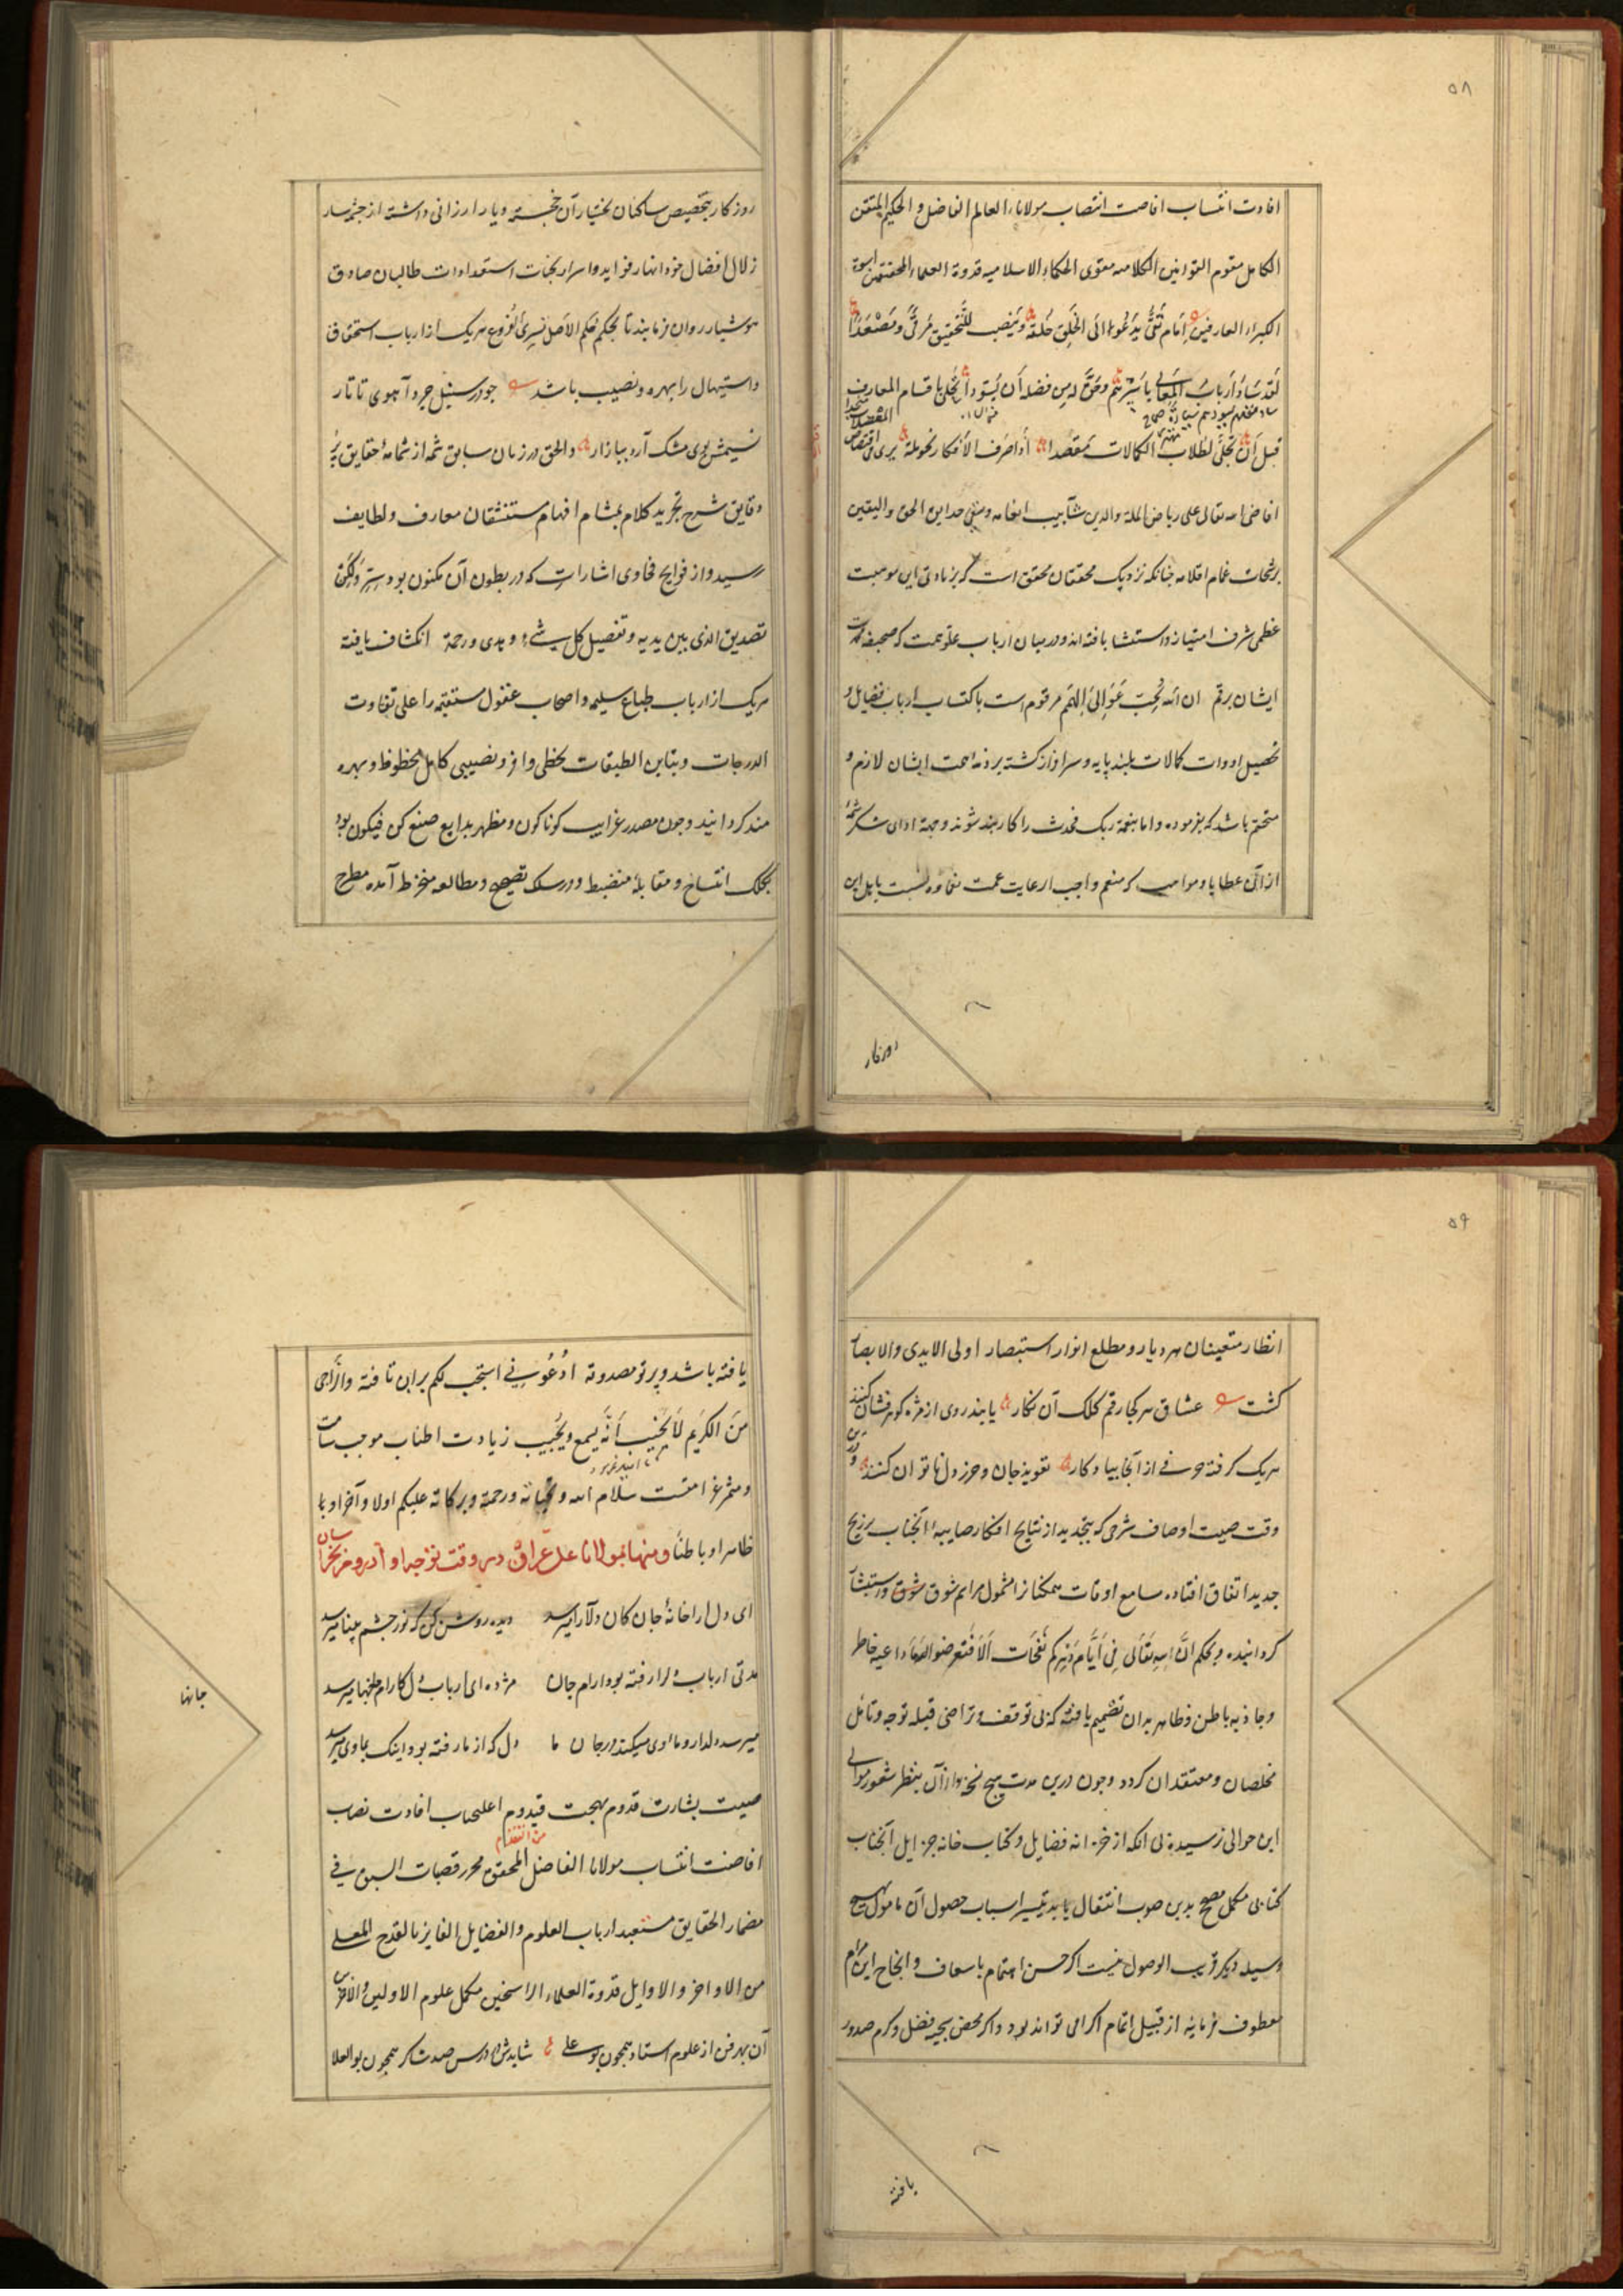 ۵۸
افادت انتساب افاضت انتصاب مولانا العالم الفاضل و الحکیم المتقن
الکامل مقوم القوانین الکلامیه مقوی الحکماء الاسلامیه قدوة العلماء المحققین اسوة
الکبراء العارفین امام تقی یدعوا الی الخلق خلقه وینصب للتحقیق مرقی ومصعدا
لقد ساد ارباب المعالی باسرهم وحق له من فضله ان یسودا تحلی باقسام المعارف
قبل ان تجلی لطلاب الکمالات مقصدا اذا صرف الافکار نحو یری فی اقتناص
افاض الله تعالی علی ریاض الملة والدین شآبیب انعامه وسقی حدایق الحق والیقین
برشحات غمام اقلامه چنانکه نزدیک محققان محقق است که بزیادتی این موهبت
عظمی شرف امتیاز و استثنا یافته اند و در میان ارباب علو همت که صحیفه
ایشان برقم ان الله یحب عوالی الهمم مرقوم است باکتساب ارباب فضایل و
تحصیل ادوات کمالات بلند پایه و سرافراز گشته بر ذمه همت ایشان لازم و
متحتم باشد که بفرموده واما بنعمة ربک فحدث را کاربند شوند وجهة ادای شکر شمه
ازان عطایا و مواهب که منعم واجب الرعایت عمت نعماؤه نسبت باهل این
روزگار
روزگار بتخصیص ساکنان بختیار آن خجسته دیار ارزانی داشته از چشمه سار
زلال افضال خود انهار فواید و اسرار بجنات استعدادات طالبان صادق
هوشیار روان فرمایند تا بحکم حکم الاصل یسری للفروع هریک را از ارباب استحقاق
واستیهال را بهره و نصیب باشد چو در سنبل چرد آهوی تاتار
نسیمش بوی مشک آرد ببازار والحق در زمان سابق شمه از شمامه حقایق پر
دقایق شرح تجرید کلام بمشام افهام مستنشقان معارف و لطایف
رسید و از فوایح فحاوی اشارات که در بطون آن مکنون بود ولکن
تصدیق الذی بین یدیه وتفصیل کل شیء وهدی ورحمة انکشاف یافته
هریک از ارباب طباع سلیمه و اصحاب عقول مستقیمه را علی تفاوت
الدرجات وتباین الطبقات بحظی وافر و نصیبی کامل محظوظ و بهره
مند گردانید و چون مصدر غرایب گوناگون و مظهر بدایع صنع کن فیکون بود
بکلک انتساخ و مقابله منضبط و در سلک تصحیح و مطالعه منخرط آمده مطرح
۵۹
انظار متعینان هر دیار و مطلع انوار استبصار اولی الایدی والابصار
گشت عشاق هر کجا رقم کلک آن نگار یابند روی از مژه گوهرفشان کنند
هریک گرفته حرفی از آنجا بیادگار تعویذ جان و حرز دل ناتوان کنند
وقت صیت اوصاف شرحی که بتجدید از نتایج افکار صایبه آنجناب بر نهج
جدید اتفاق افتاده مسامع اوقات همکنانرا مشمول مراسم شوق واستبشار
گردانیده و بحکم ان لله تعالی فی ایام دهرکم نفحات الا فتعرضوا لها داعیه خاطر
و جاذبه باطن و ظاهر بدان تصمیم یافته که بی توقف و تراخی قبله توجه و تامل
مخلصان و معتقدان گردد و چون درین مدت هیچ نسخه از آن بنظر شعور موالی
این حوالی نرسیده بی آنکه از خزانه فضایل و کتاب خانه جزایل آنجناب
کتابی مکمل مصحح بدین صوب انتقال یابد تیسیر اسباب حصول آن مامول بهیچ
وسیله دیگر قریب الوصول نیست اگر حسن اهتمام باسعاف و انجاح این مرام
معطوف فرمایند از قبیل اتمام اکرامی تواند بود و اگر محض سجیه فضل و کرم صدور
یافته
یافته باشد و پرتو مصدوقه ادعونی استجب لکم بر این تافته والراجی
من الکریم لا یخیب انه یسمع ویجیب زیادت اطناب موجب سامت
ومثمر غرامتست سلام الله وتحیاته ورحمة وبرکاته علیکم اولا وآخرا و
ظاهرا وباطنا ومنها بمولانا علی عراق در وقت توجه او از روم بخراسان
ای دل ارا خانه جان کان دلارا میرسد دیده روشن کن که نور چشم بینا میرسد
مدتی ارباب دلرا رفته بود ارام جان مژده ای ارباب دل کارام جانها میرسد
میرسد دلدار و ماوی میکند در جان ما دل که از ما رفته بود اینک بماوی میرسد
صیت بشارت قدوم بهجت قیدوم اعلیجناب افادت نصاب
افاضت انتساب مولانا الفاضل المحقق محرز قصبات السبق فی
مضمار الحقایق مستعبد ارباب العلوم والفضایل الفایز بالقدح المعلی
من الاواخر والاوایل قدوة العلماء الراسخین مکمل علوم الاولین والآخرین
آن بهر فن از علوم استاد همچون بوعلی شایدش در درس صد شاگرد همچون بوالعلا
جانها